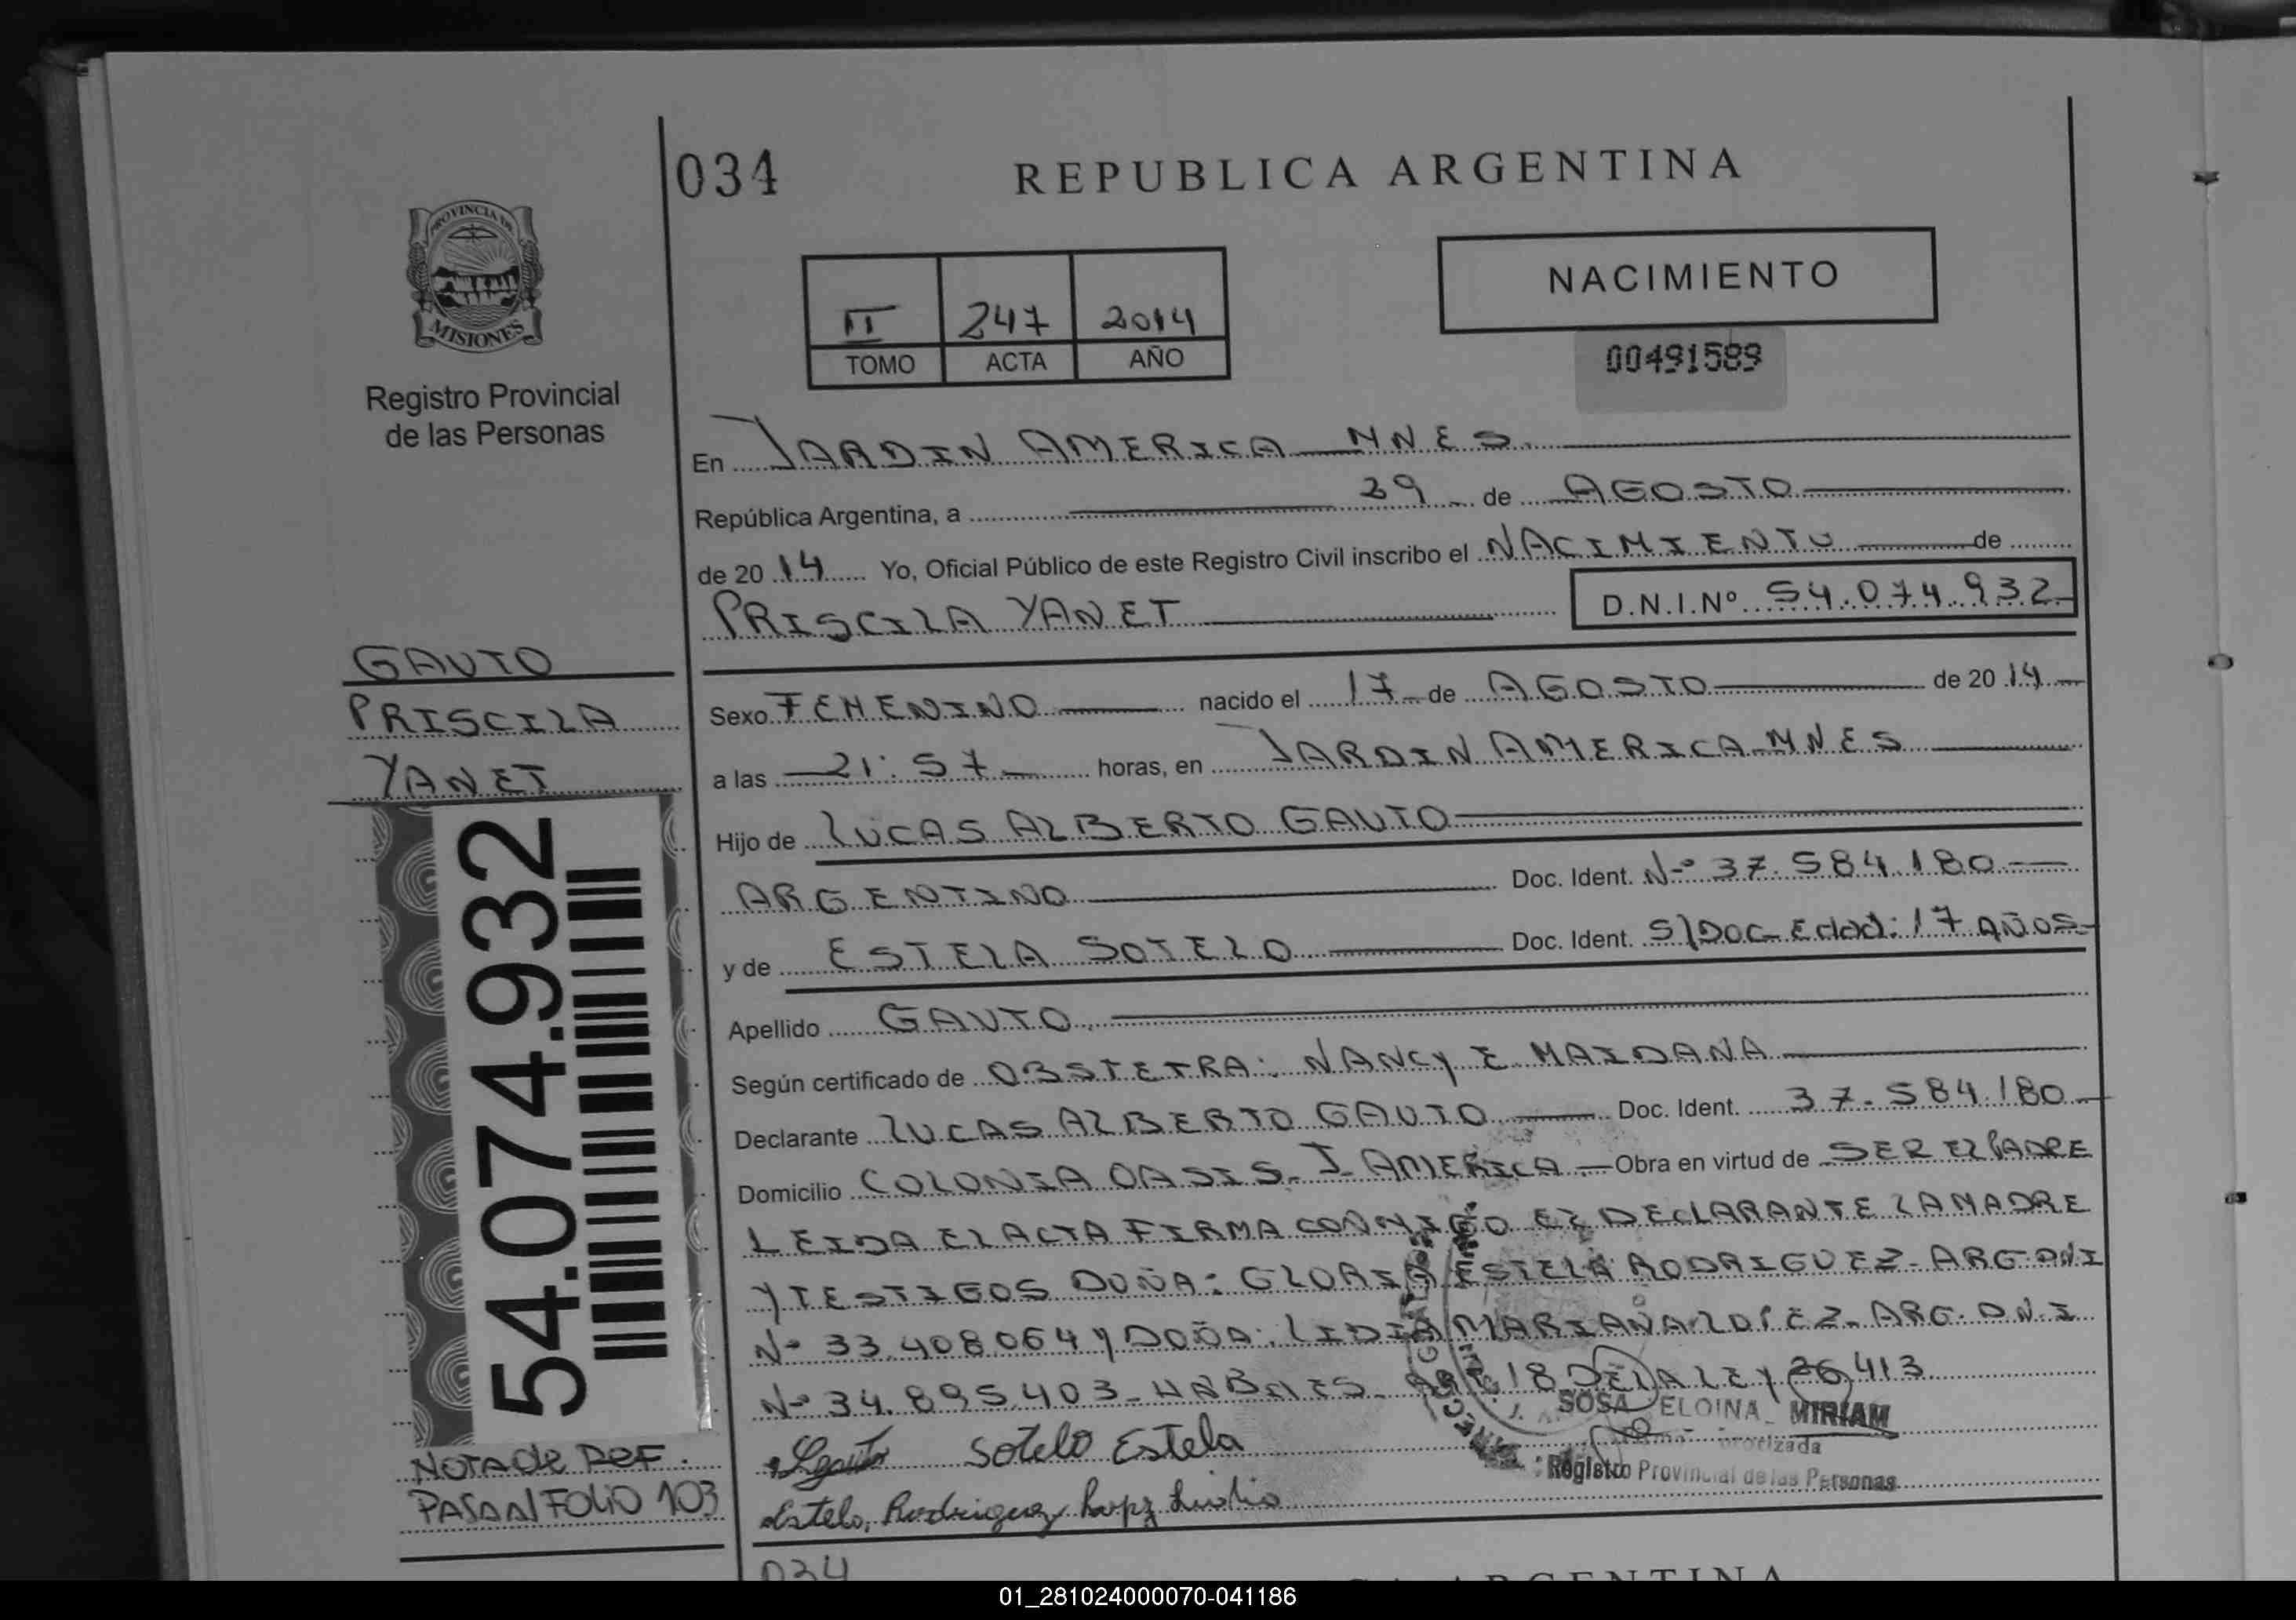 034
REPUBLICA ARGENTINA
PROVINCIA DE
MISIONES
Registro Provincial
de las Personas
II 247 2014
TOMO ACTA AÑO
NACIMIENTO
00491589
En JARDIN AMERICA MNES.
República Argentina, a 29 de AGOSTO
de 2014 Yo, Oficial Público de este Registro Civil inscribo el NACIMIENTO de
PRISCILA YANET D.N.I.Nº 54.074.932
GAUTO
PRISCILA
YANET
Sexo FEMENINO nacido el 17 de AGOSTO de 2014
a las 21:57 horas, en JARDIN AMERICA MNES
Hijo de LUCAS ALBERTO GAUTO
ARGENTINO Doc. Ident. Nº 37.584.180
y de ESTELA SOTELO Doc. Ident. S/DOC Edad: 17 AÑOS
Apellido GAUTO
Según certificado de OBSTETRA: NANCY E MAIDANA
Declarante LUCAS ALBERTO GAUTO Doc. Ident. 37.584.180
Domicilio COLONIA OASIS - J. AMERICA Obra en virtud de SER EL PADRE
LEIDA EL ACTA FIRMA CONMIGO EL DECLARANTE LA MADRE
Y TESTIGOS DOÑA: GLORIA ESTELA RODRIGUEZ - ARG. DNI
Nº 33.408.064 y DOÑA: LIDIA MARIANA LOPEZ - ARG. D.N.I
Nº 34.895.403 - HABILES - ART. 18 DE LA LEY 26.413
54.074.932
SOSA ELOINA MIRIAM
Sotelo Estela
Registro Provincial de las Personas
Estela, Rodriguez
NOTA de REF.
PASA AL FOLIO 103
034
01_281024000070-041186